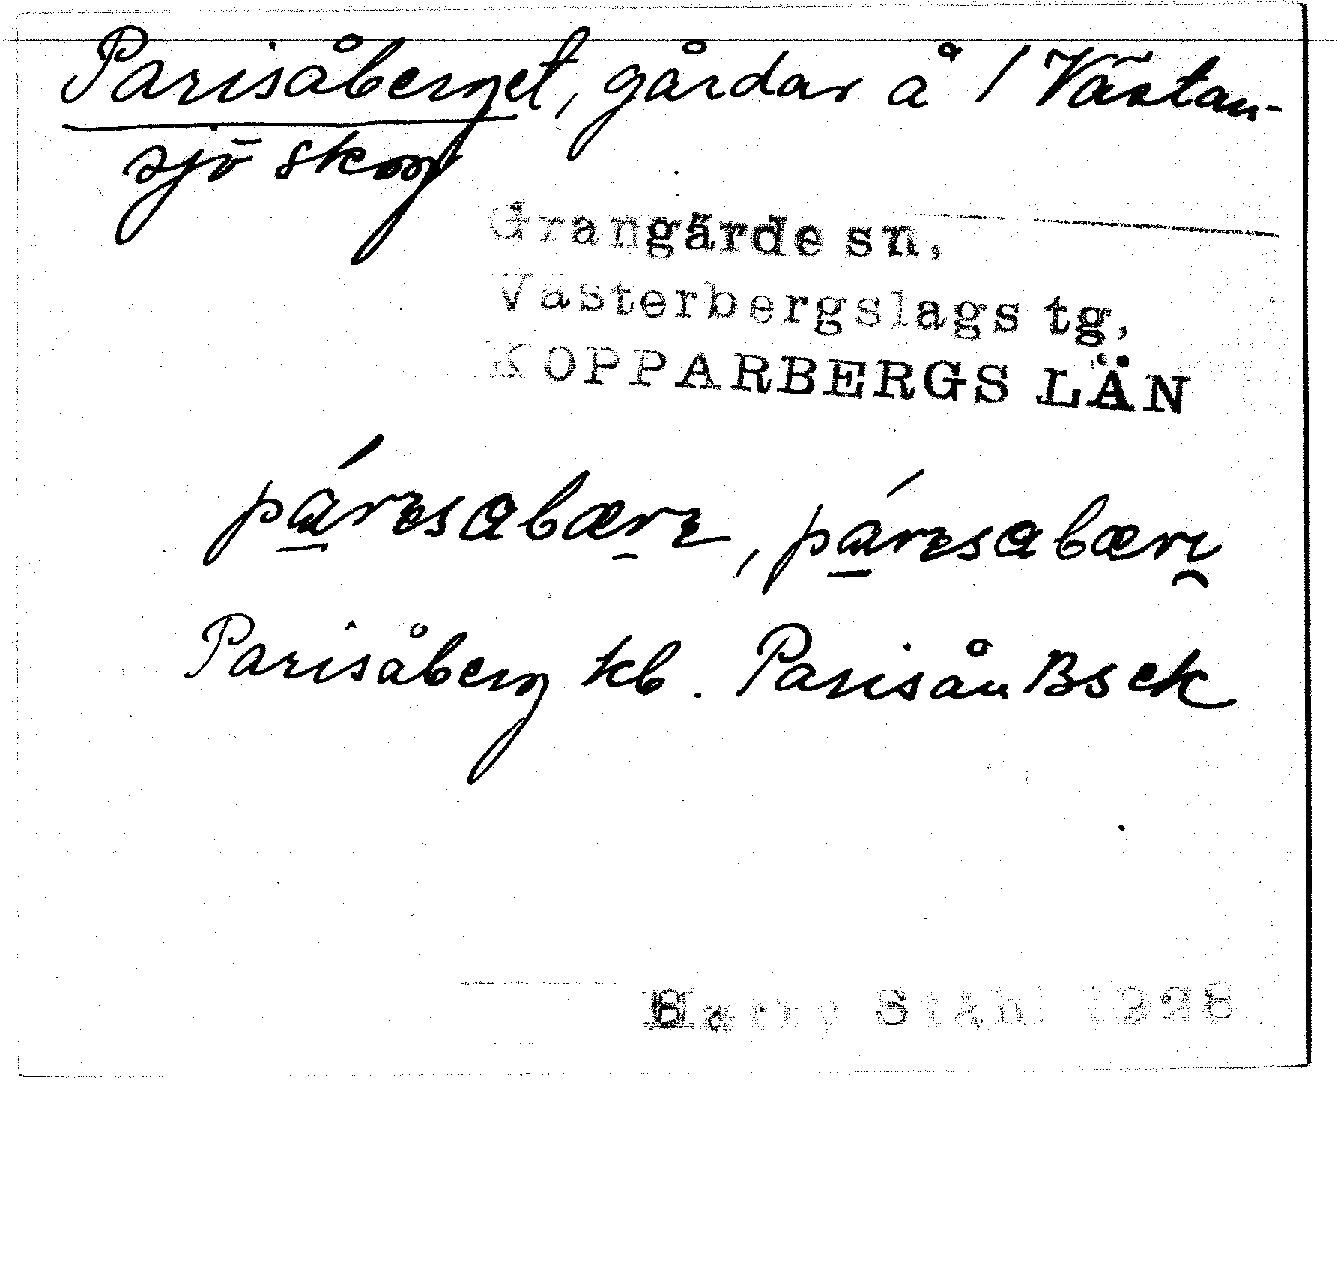 Parisåberget, gårdar å / Västan-
sjö skog
Grangärde sn,
Västerbergslags tg,
KOPPARBERGS LÄN
Parisåberg kb. Parisån Bsek
Harry Ståhl 1928